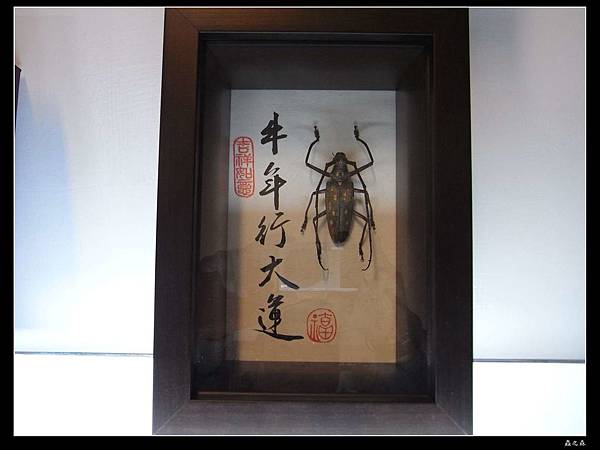 牛年行大運
吉祥如意
福
蟲之森